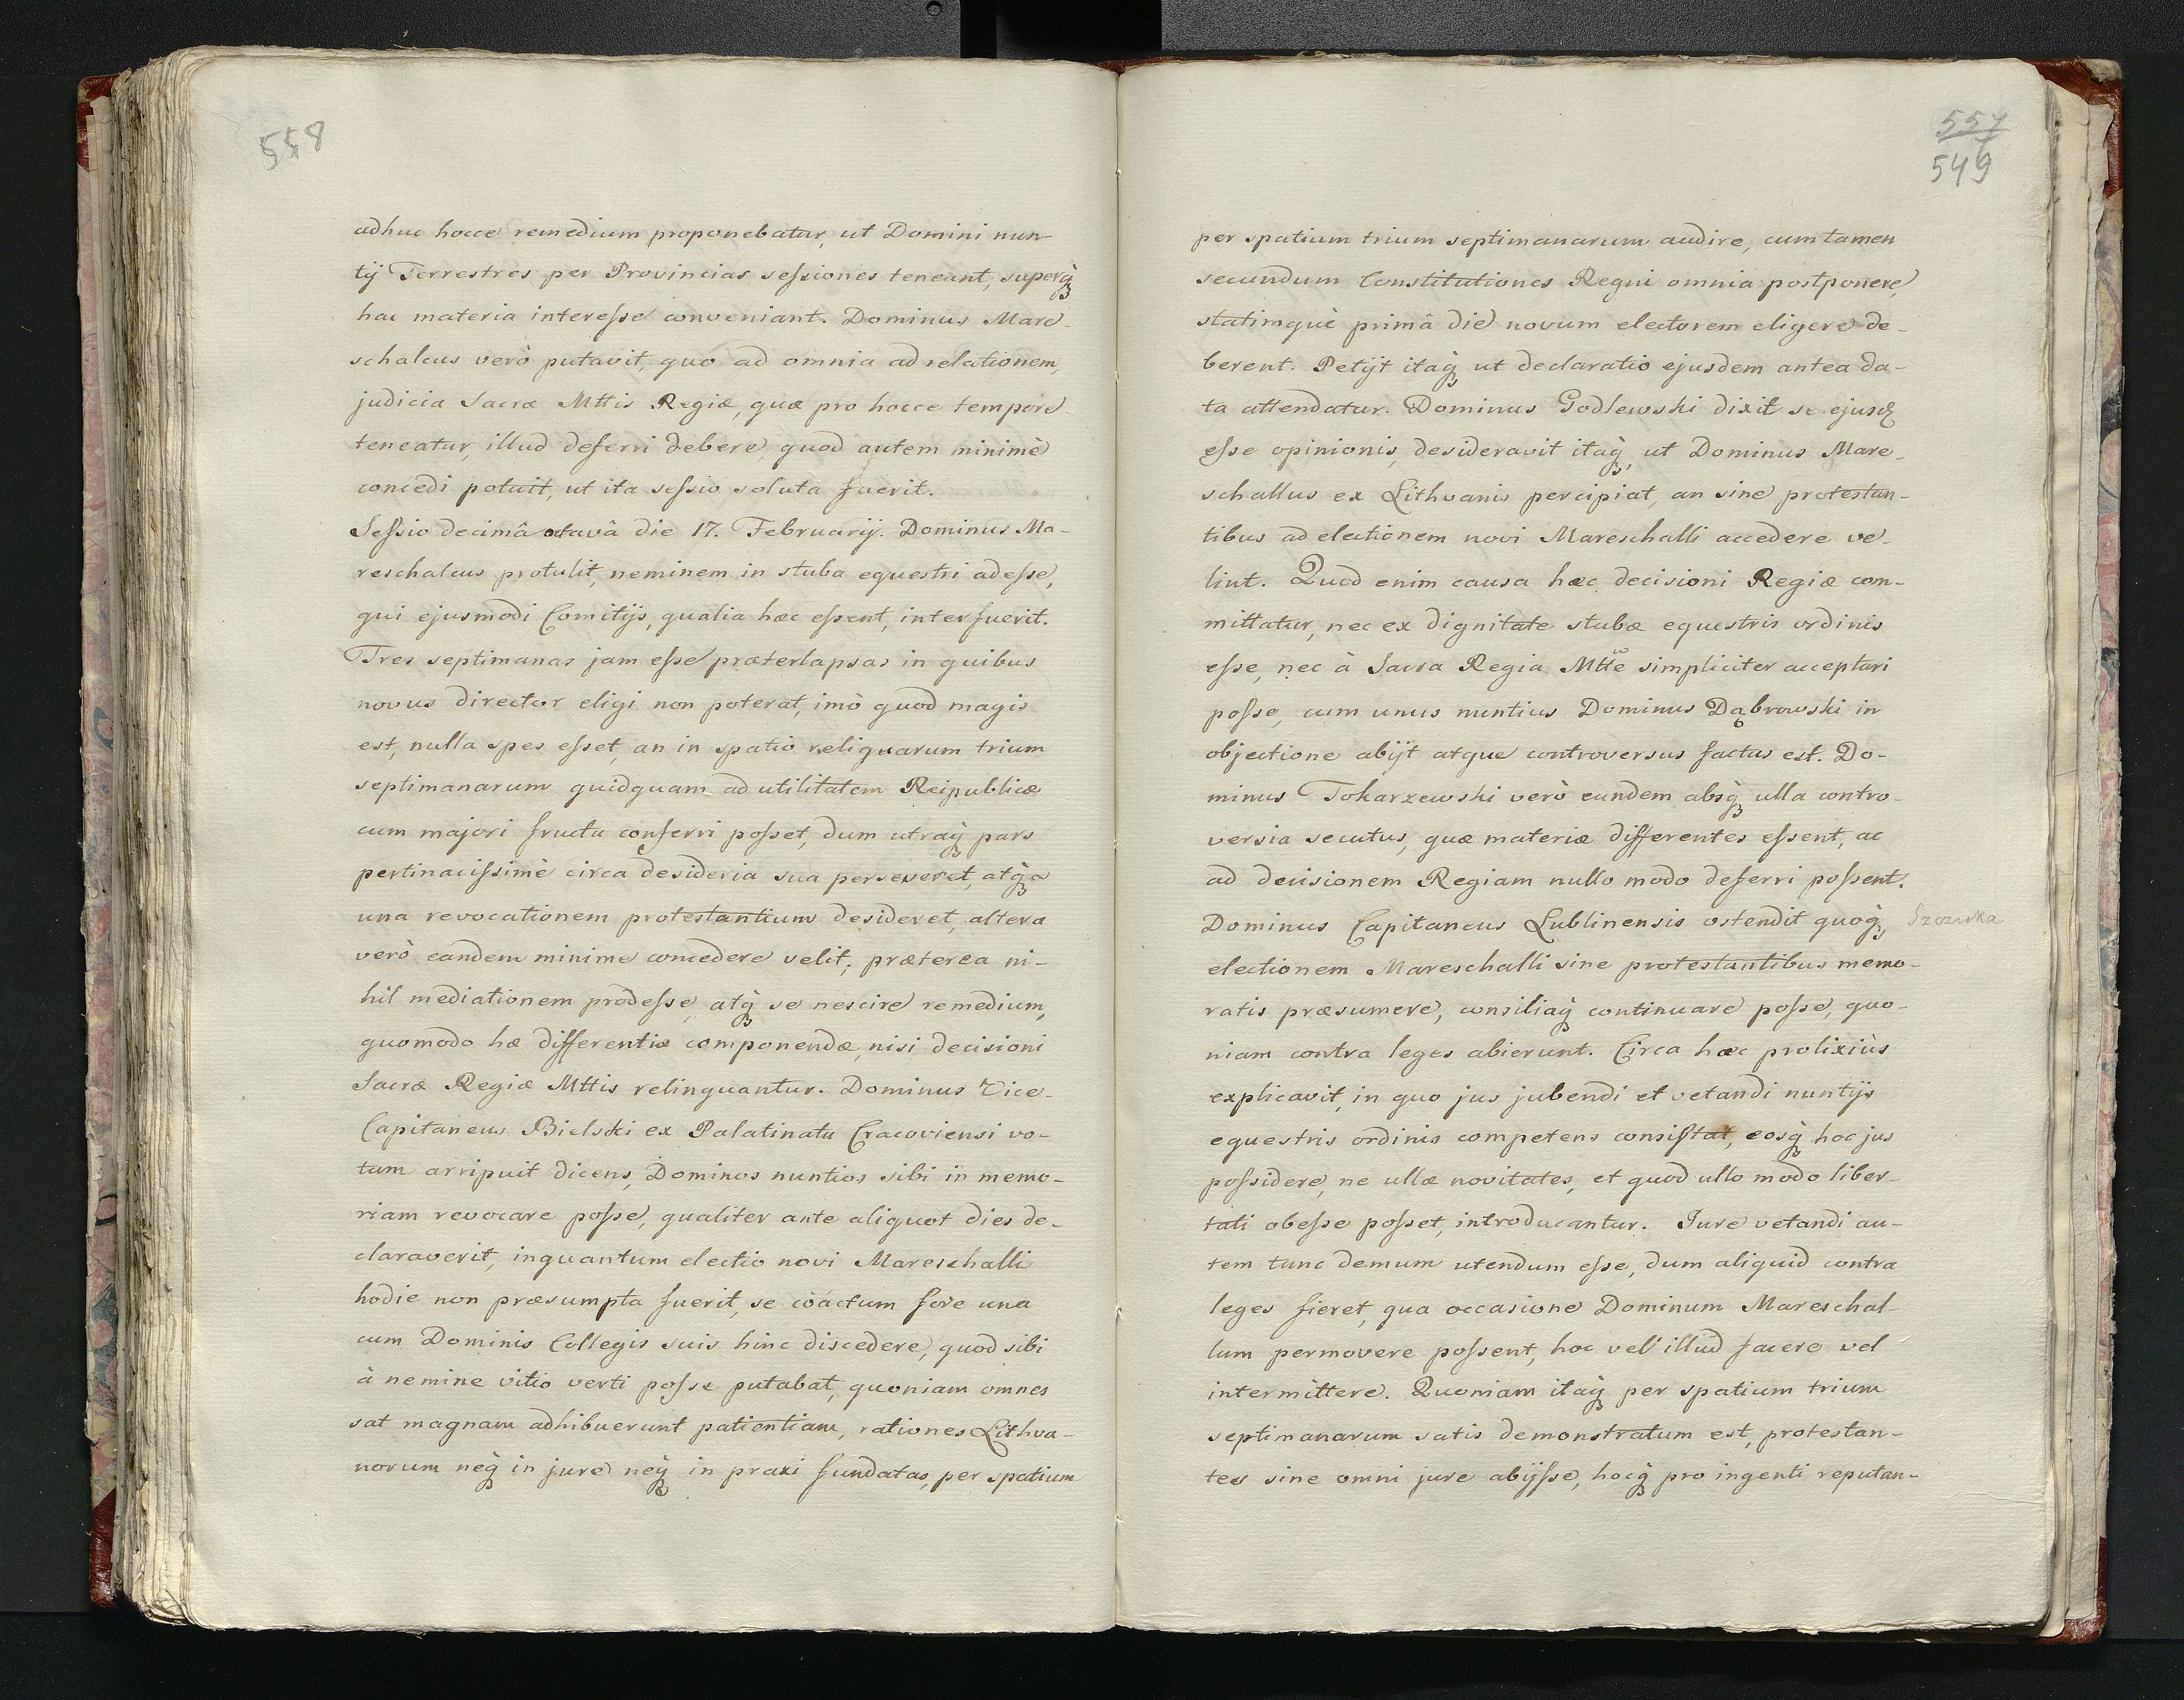 558
adhuc hocce remedium proponebatur, ut Domini nun-
tij Terrestres per Provincias seſsiones teneant, superq̀
hac materia intereſse conveniant. Dominus Mare-
schalcus verò putavit, quo ad omnia ad relationem,
judicia Sacræ Mttis Regiæ, quæ pro hocce tempore
teneatur, illud deferri debere, quod autem minimè
concedi potuit, ut ita seſsio soluta fuerit.
Seſsio decimâ octavâ die 17. Februarij. Dominus Ma-
reschalcus protulit, neminem in stuba equestri adeſse,
qui ejusmodi Comitijs, qualia hæc eſsent, interfuerit.
Tres septimanas jam eſse præterlapsas in quibus
novus director eligi non poterat, imò quod magis
est, nulla spes eſset, an in spatio reliquarum trium
septimanarum quidquam ad utilitatem Reipublicæ
cum majori fructu conferri poſset, dum utraq̀ pars
pertinaciſsimè circa desideria sua perseveret, atq̀
una revocationem protestantium desideret, altera
verò eandem minime concedere velit; præterea ni-
hil mediationem prodeſse, atq̀ se nescire remedium,
quomodo hæ differentiæ componendæ, nisi decisioni
Sacræ Regiæ Mttis relinquantur. Dominus Vice-
Capitaneus Bielski ex Palatinatu Cracoviensi vo-
tum arripuit dicens, Dominos nuntios sibi in memo-
riam revocare poſse, qualiter ante aliquot dies de-
claraverit, inquantum electio novi Mareschalli
hodie non præsumpta fuerit, se coactum fore una
cum Dominis Collegis suis hinc discedere, quod sibi
à nemine vitio verti poſse putabat, quoniam omnes
sat magnam adhibuerunt patientiam, rationes Lithva-
norum neq̀ in jure neq̀ in praxi fundatas, per spatium
557
549
per spatium trium septimanarum audire, cum tamen
secundum Constitutiones Regni omnia postponere,
statimquè primâ die novum electorem eligere de-
berent. Petijt itaq̀ ut declaratio ejusdem antea da-
ta attendatur. Dominus Godlewski dixit se ejusd
eſse opinionis, desideravit itaq̀, ut Dominus Mare-
schallus ex Lithvanis percipiat, an sine protestan-
tibus ad electionem novi Mareschalli accedere ve-
lint. Quod enim causa hæc decisioni Regiæ com-
mittatur, nec ex dignitate stubæ equestris ordinis
eſse, nec à Sacra Regia Mtte simpliciter acceptari
poſse, cum unus nuntius Dominus Dąbrowski in
objectione abijt atque controversus factus est. Do-
minus Tokarzewski verò eundem absq̀ ulla contro-
versia secutus, quæ materiæ differentes eſsent, ac
ad decisionem Regiam nullo modo deferri poſsent.
Dominus Capitaneus Lublinensis ostendit quoq̀, Szczuka
electionem Mareschalli sine protestantibus memo-
ratis præsumere, consiliaq̀ continuare poſse, quo-
niam contra leges abierunt. Circa hæc prolixiùs
explicavit, in quo jus jubendi et vetandi nuntijs
equestris ordinis competens consistat, eosq̀ hoc jus
poſsidere, ne ullæ novitates, et quod ullo modo liber-
tati obeſse poſset, introducantur. Jure vetandi au-
tem tunc demum utendum eſse, dum aliquid contra
leges fieret, qua occasione Dominum Mareschal-
lum permovere poſsent, hoc vel illud facere vel
intermittere. Quoniam itaq̀ per spatium trium
septimanarum satis demonstratum est, protestan-
tes sine omni jure abijſse, hocq̀ pro ingenti reputan-